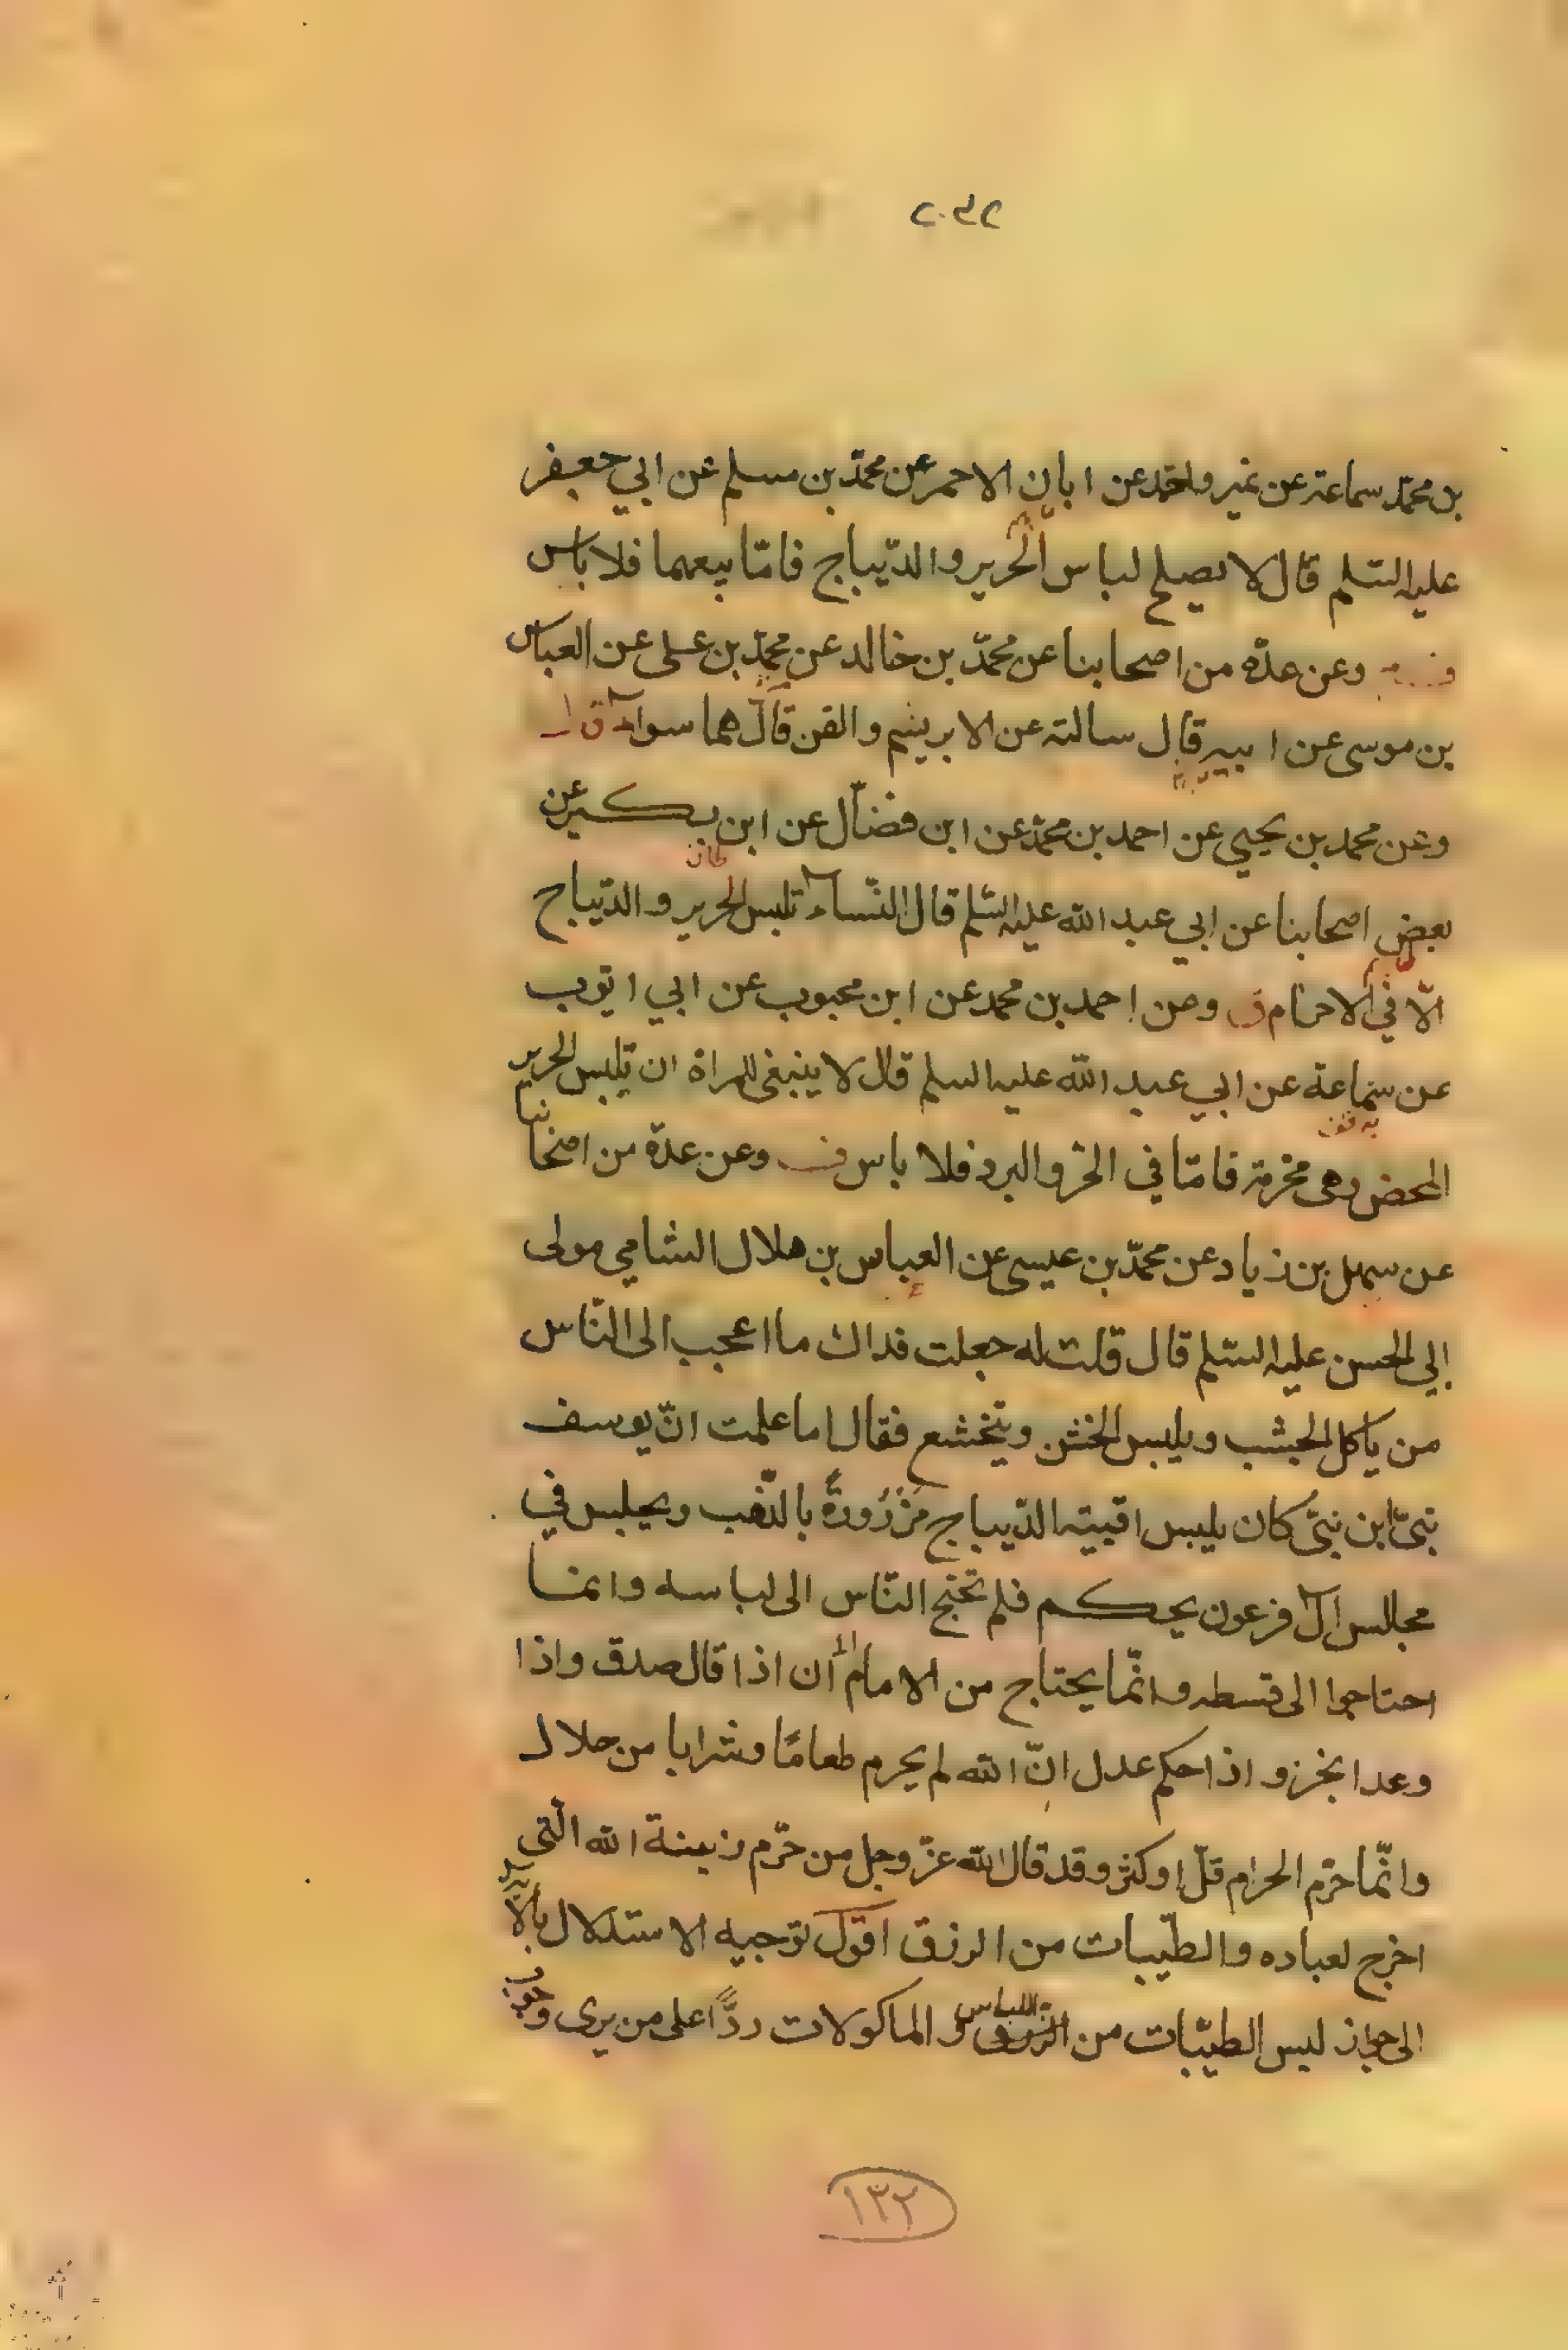 بن محمّد سماعة عن غير واحد عن ابان الاحمر عن محمّد بن مسلم عن ابي جعفر
عليه السّلم قال لا يصلح لباس الحرير والدّيباج فامّا بيعهما فلا باس
وعن عدّة من اصحابنا عن محمّد بن خالد عن محمّد بن على عن العباس
بن موسى عن ابيه قال سالته عن الابريشم والقز قال هما سواء
وعن محمد بن يحيي عن احمد بن محمّد عن ابن فضّال عن ابن بكير عن
بعض اصحابنا عن ابي عبد الله عليه السّلم قال النّساء تلبس الحرير والدّيباج
الّا في الاحرام وعن احمد بن محمد عن ابن محبوب عن ابي ايّوب
عن سماعة عن ابي عبد الله عليه السلم قال لا ينبغى للمراة ان تلبس الحرير
المحض وهى محرمة فامّا في الحرّ والبرد فلا باس وعن عدّة من اصحابنا
عن سهل بن زياد عن محمّد بن عيسى عن العباس بن هلال الشامي مولى
ابي الحسن عليه السّلم قال قلت له جعلت فداك ما اعجب الى النّاس
من ياكل الجشب ويلبس الخشن ويتخشع فقال اما علمت انّ يوسف
نبىّ ابن نبىّ كان يلبس اقبية الدّيباج مَزْرُورةً بالذّهب ويجلس في
مجالس آل فرعون يحكم فلم تحتج النّاس الى لباسه وانما
احتاجوا الى قسطه وانّما يحتاج من الامام ان اذا قال صدق واذا
وعد انجز و اذا حكم عدل انّ الله لم يحرم طعامًا وشرابا من حلال
وانّما حرّم الحرام قلّ او كثر وقد قال الله عزّ وجل من حرّم زينة الله الّتي
اخرج لعباده والطيّبات من الرزق اقول توجيه الاستدلال بالاية
الى جواز لبس الطيّبات من اللباس و الماكولات ردًّا على من يرى وجوب
١٣٢